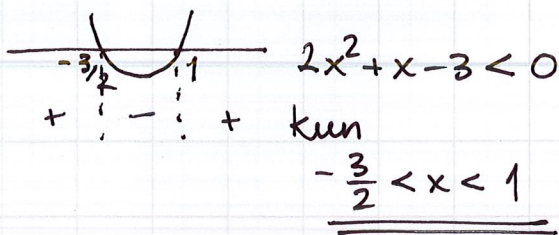 -3/2 1
+ - +
2x² + x - 3 < 0
kun
-3/2 < x < 1